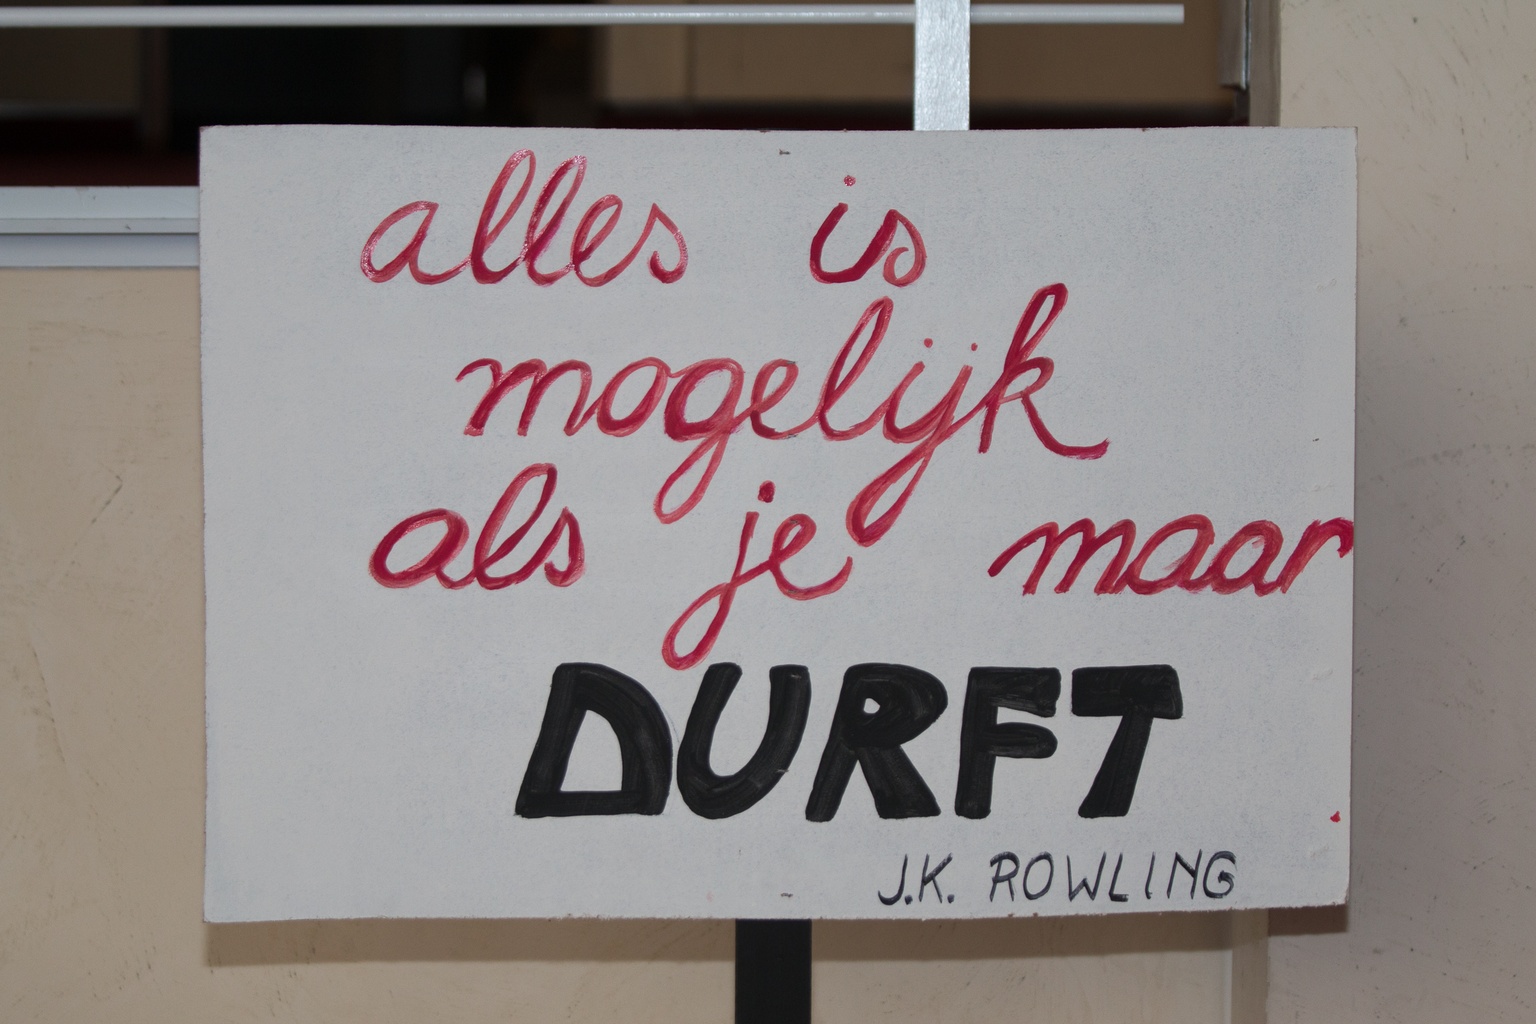 alles is
mogelijk
als je maar
DURFT
J.K. ROWLING